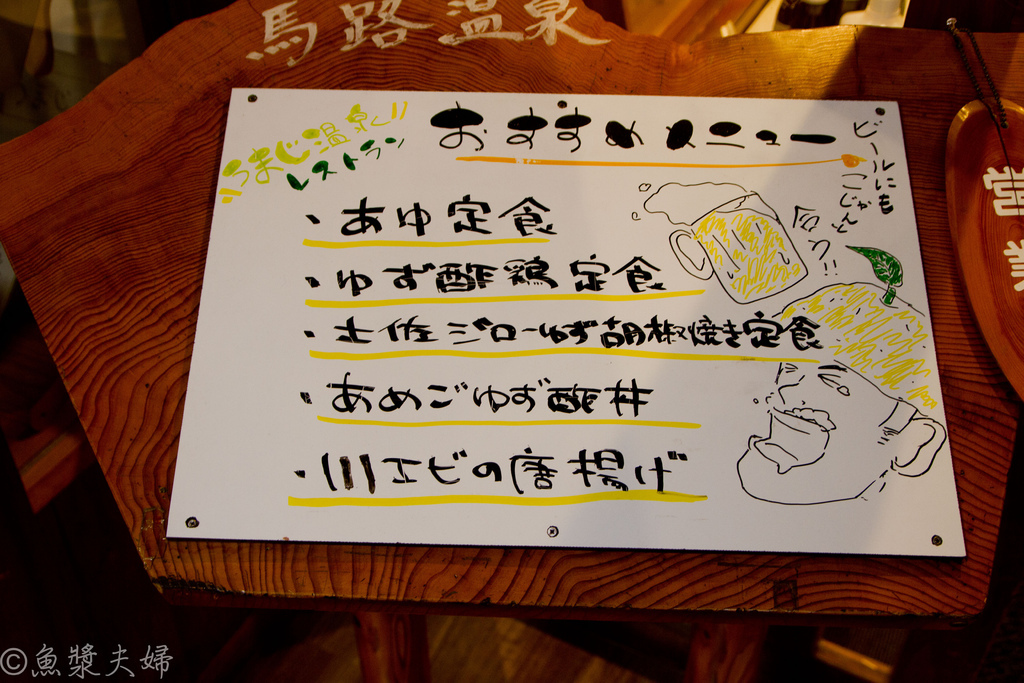 馬路温泉
うまじ温泉
レストラン
おすすめメニュー
ビールにも
・あゆ定食
・ゆず酢鶏定食
・土佐ジローゆず胡椒焼き定食
・あめごゆず酢丼
・川エビの唐揚げ
営業
©魚漿夫婦